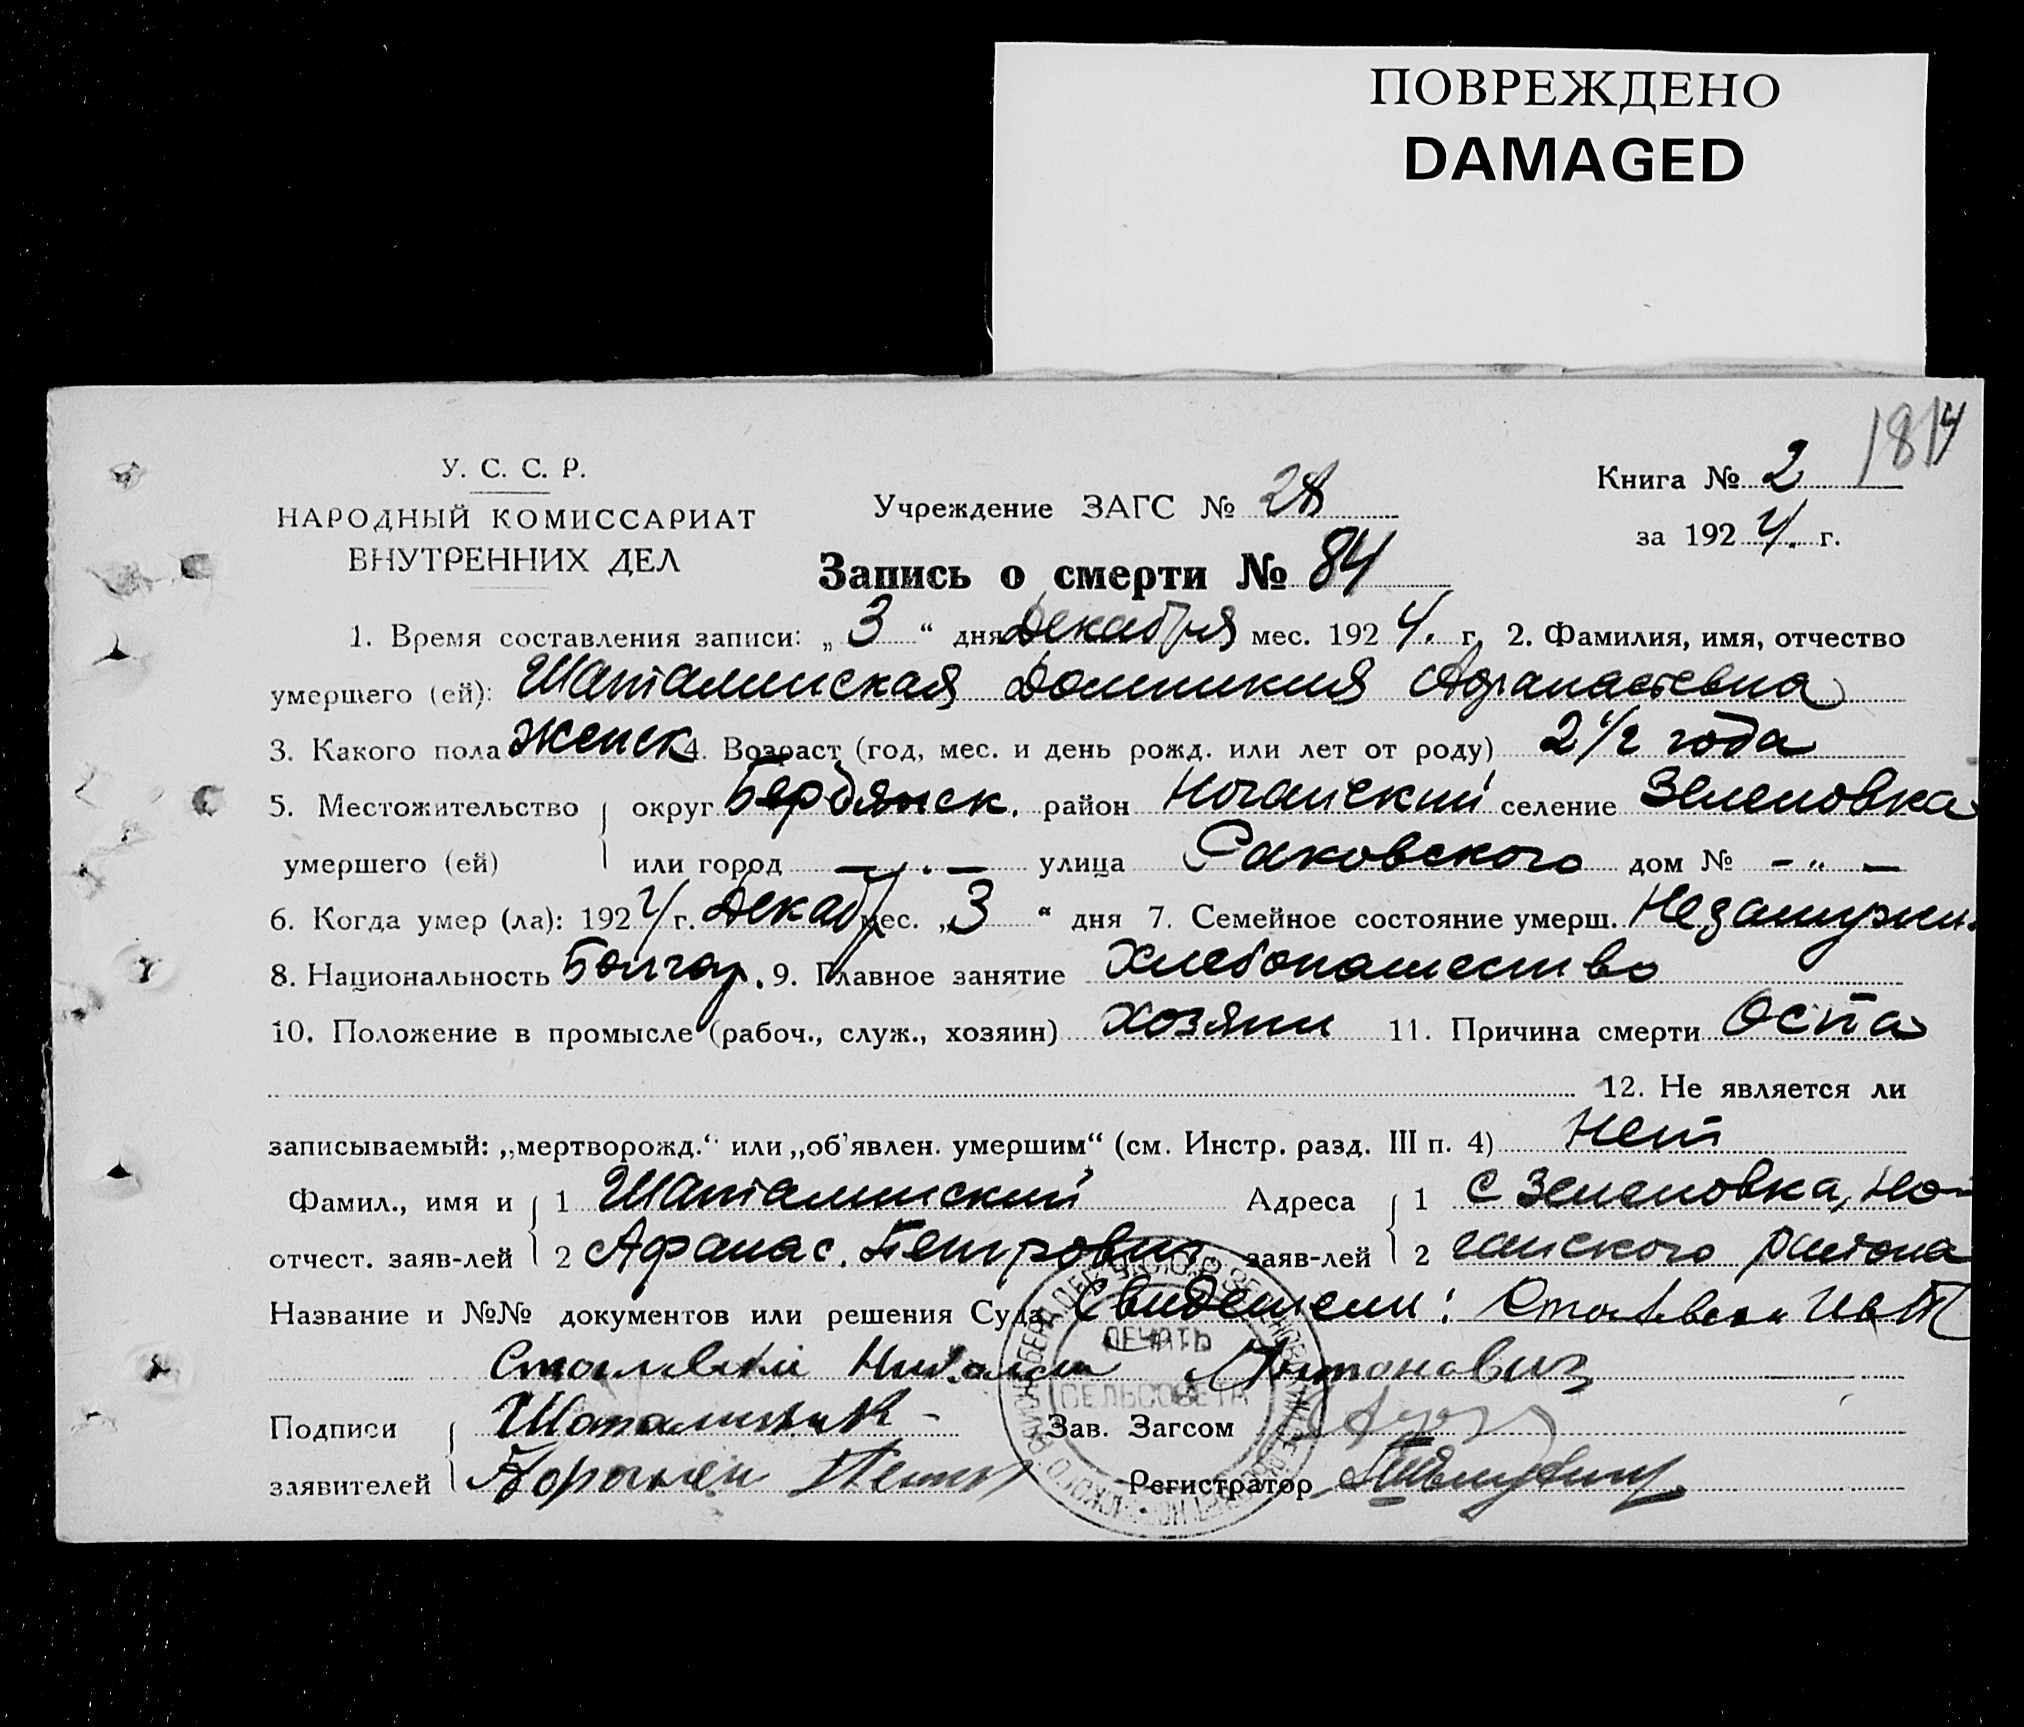 ПОВРЕЖДЕНО
DAMAGED
1814
У. С. С. Р.
НАРОДНЫЙ КОМИССАРИАТ
ВНУТРЕННИХ ДЕЛ
Учреждение ЗАГС № 28
Книга № 2
за 1924. г.
Запись о смерти № 84
1. Время составления записи: „3“ дня Декабря мес. 1924. г. 2. Фамилия, имя, отчество
умершего (ей): Шаталинская Домникия Афанасьевна
3. Какого пола женск 4. Возраст (год, мес. и день рожд. или лет от роду) 2 1/2 года
5. Местожительство округ Бердянск. район Ногайский селение Зеленовка
умершего (ей) или город — . — улица Раковского дом № - „ —
6. Когда умер (ла): 1924 г. Декабр мес. „3“ дня 7. Семейное состояние умерш. Незамужн.
8. Национальность Болгар. 9. Главное занятие Хлебопашество
10. Положение в промысле (рабоч., служ., хозяин) хозяин 11. Причина смерти Оспа
12. Не является ли
записываемый: „мертворожд.“ или „об'явлен. умершим“ (см. Инстр. разд. III п. 4) Нет
Фамил., имя и 1 Шаталинский Адреса 1 с Зеленовка, Но-
отчест. заяв-лей 2 Афанас. Петрович заяв-лей 2 гайского района
Название и №№ документов или решения Суда Свидетели:
Антонович
Подписи Зав. Загсом
заявителей Регистратор
ПЕЧАТЬ
СЕЛЬСОВЕТА